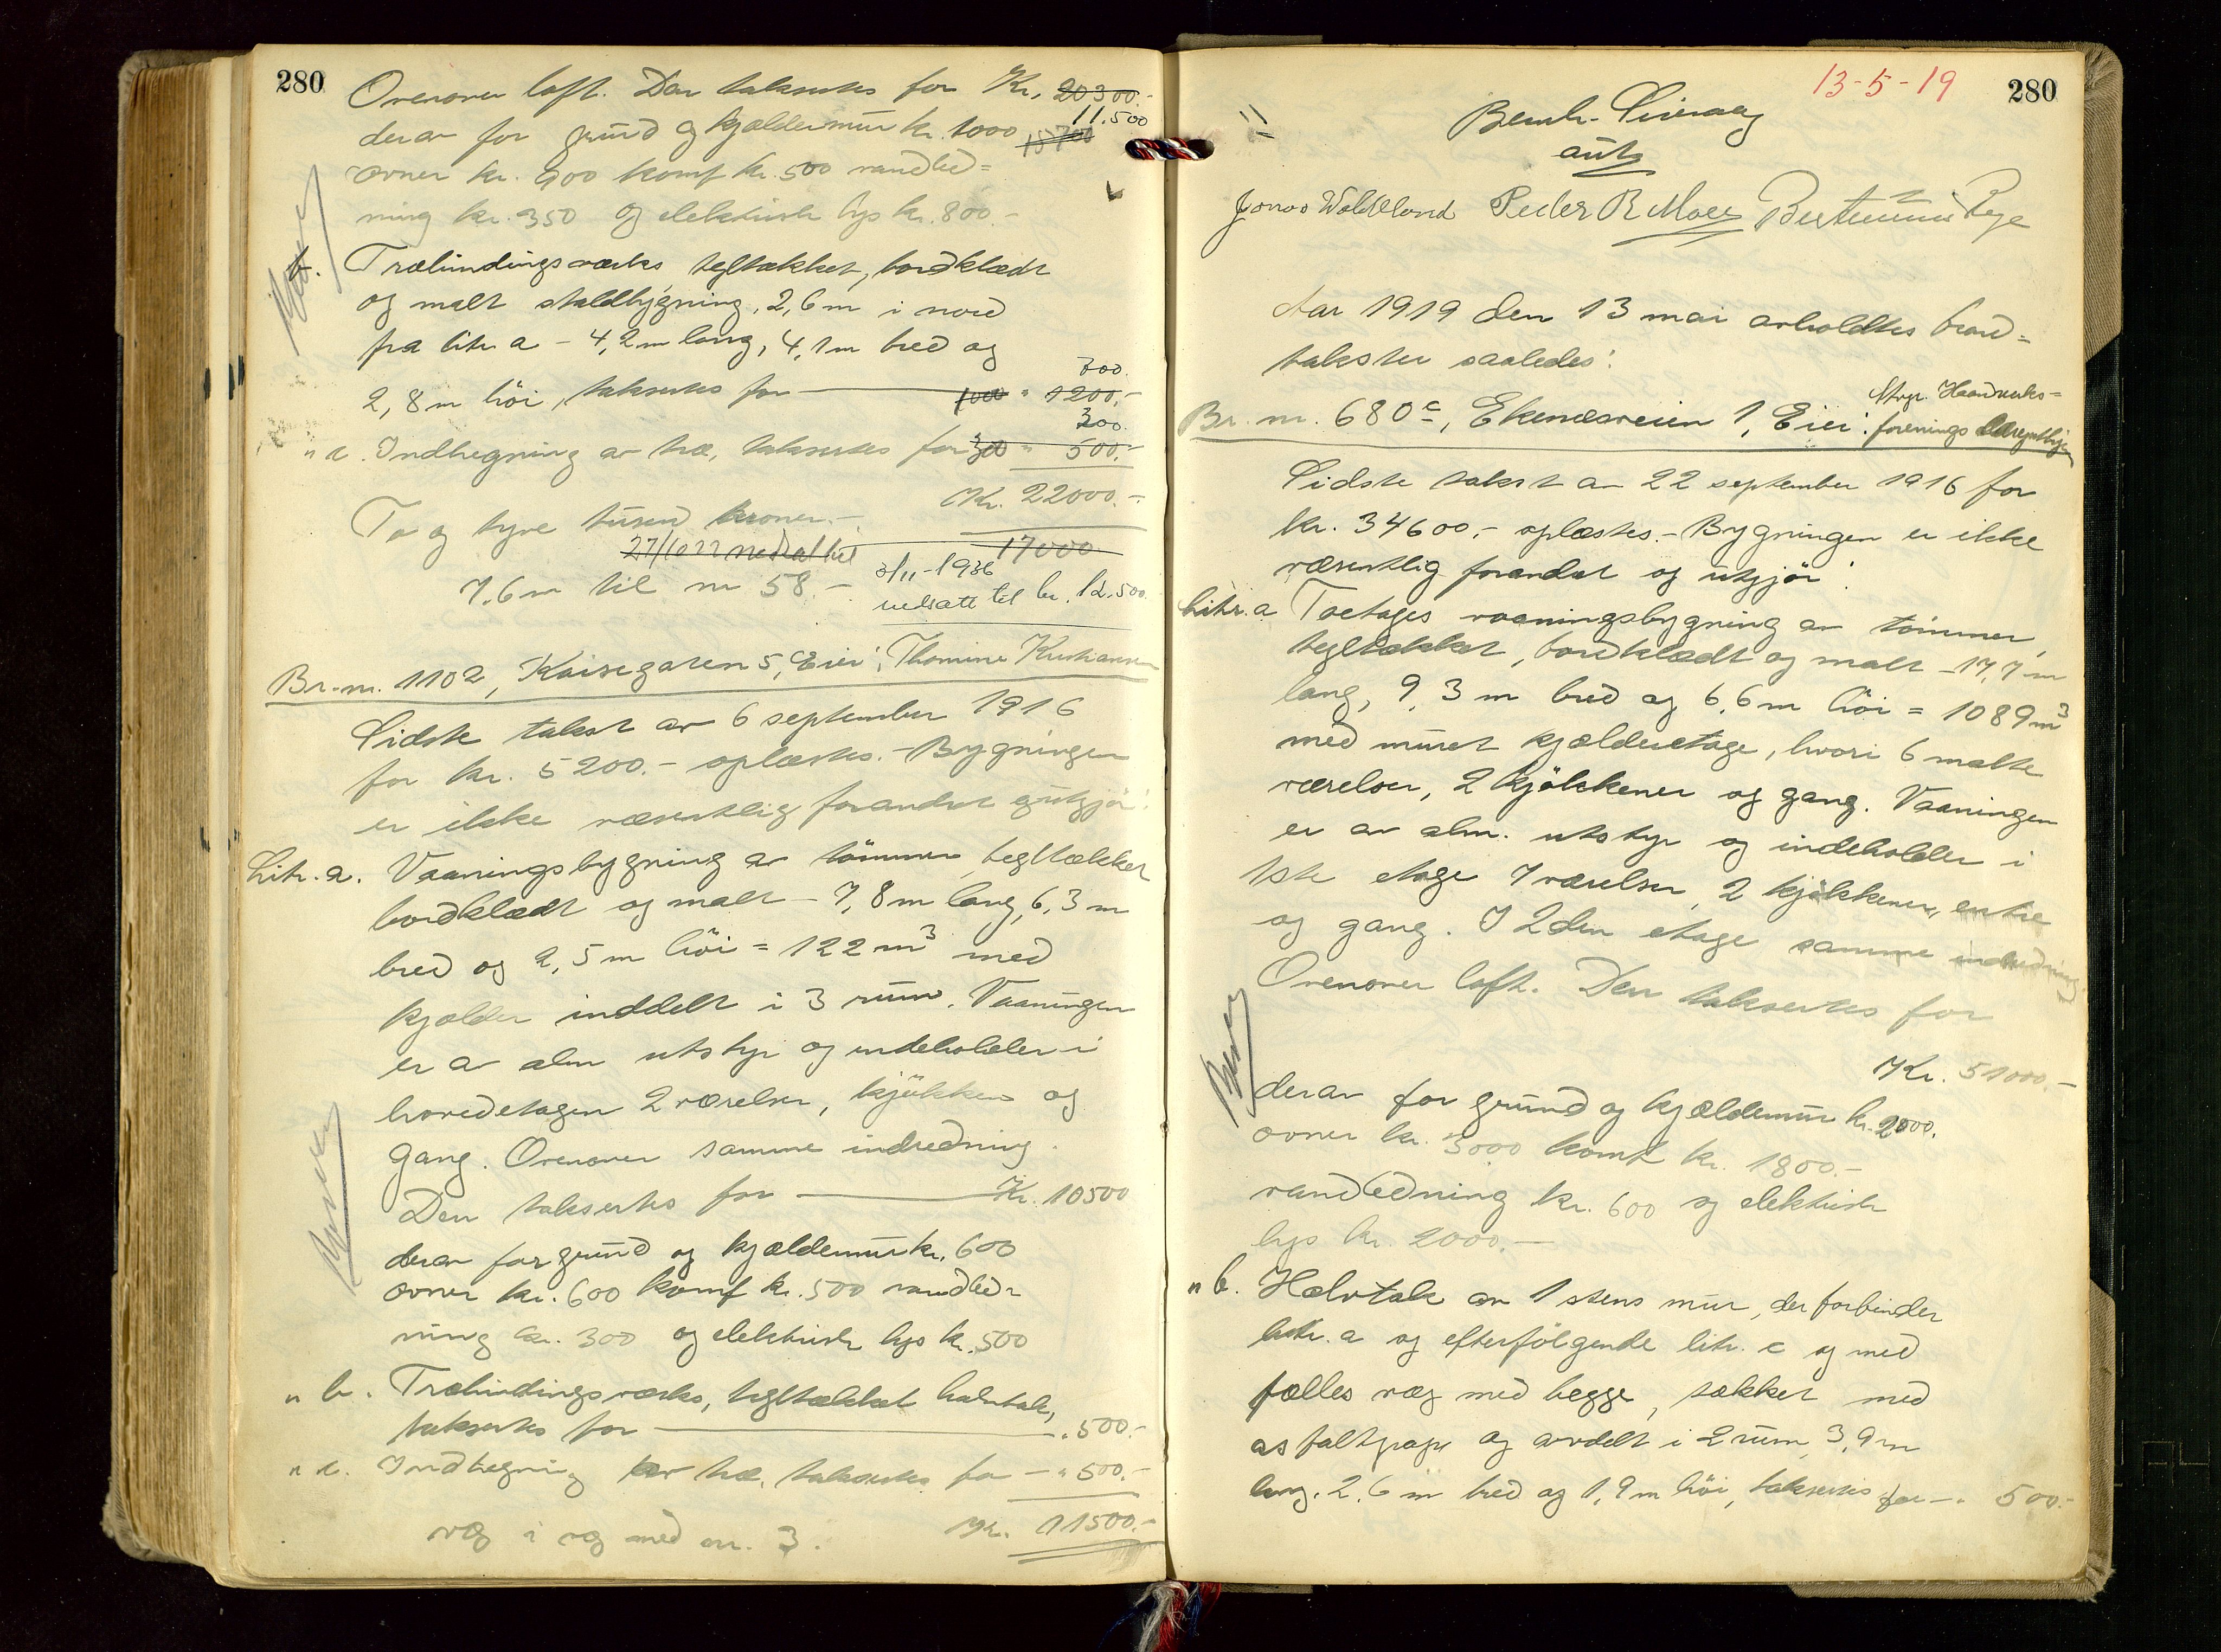 280
Ovenover loft. Den takseres for Kr. 20300.-
11.500
derav for grund og kjældermur kr. 1000 15700
ovner kr. 900 komf kr. 500 vandled=
ning kr. 350 og elektrisk lys kr. 800.-
b. Træbindingsverks tegltækket, bordklædt
og malt staldbygning, 2,6 m i nord
fra litr a - 4,2 m lang, 4,1 m bred og
700.
2,8 m höi, takseres for 1200.-
300.
" c. Indhegning av træ, takseres for 300 " 500.-
Kr. 22000.-
To og tyve tusen kroner.-
27/10 22 nedsat til 17000
7.6 m til nr 58.- 3/11-1936
nedsatt til kr. 12.500.
Br.nr. 1102, Kaisegaten 5, Eier: Thomine Kristiansen
Sidste takst av 6 september 1916
for kr. 5200.- oplæstes.- Bygningen
er ikke væsentlig forandret og utgjör:
Litr. a. Vaaningsbygning av tömmer, tegltækket
bordklædt og malt - 7,8 m lang, 6,3 m
bred og 2,5 m höi = 122 m3 med
kjælder inddelt i 3 rum. Vaaningen
er a alm utstyr og indeholder i
hovedetagen 2 værelser, kjökken og
gang. Ovenover samme indredning.
Den takseres for Kr. 10500
derav for grund og kjældermur kr. 600
ovner kr. 600 komf kr. 500 vandled=
ning kr. 300 og elektrisk lys kr. 500
" b. Træbindingsverks, tegltækket halvtak,
takseres for " 500.-
" c. Indhegning av træ, takseres for - " 500.-
væg i væg med nr. 3. Kr. 11500.-
13-5-19 280
Bernh.
Jonas Peder R Moe Rege
Aar 1919 den 13 mai avholdtes brand=
takster saaledes:
Strgr. Haandverks=
Br. nr. 680c, Ekenæsveien 1, Eier: forenings
Sidste takst av 22 september 1916 for
kr. 34600.- oplæstes.- Bygningen er ikke
væsentlig forandret og utgjör:
Litr. a Toetages vaaningsbygning av tömmer,
tegltækket, bordklædt og malt - 17,7 m
lang, 9,3 m bred og 6,6 m höi = 1089 m3
med muret kjælderetage, hvori 6 malte
værelser, 2 kjökkener og gang. Vaaningen
er av alm. utstyr og indeholder i
1ste etage 7 værelser, 2 kjökkener, entre
og gang. I 2den etage samme indredning
Ovenover loft. Den takseres for
Kr. 51000.-
derav for grund og kjældermur kr. 2000.
ovner kr. 3000 komf kr. 1800.-
vandledning kr. 600 og elektrisk
lys kr. 2000.-
" b. Halvtak av 1 stens mur, der forbinder
litr. a og efterfölgende litr. c og med
fælles væg med begge, tækket med
asfaltpap og avdelt i 2 rum 3,9 m
lang, 2,6 m bred og 1,9 m höi, takseres for - " 500.-